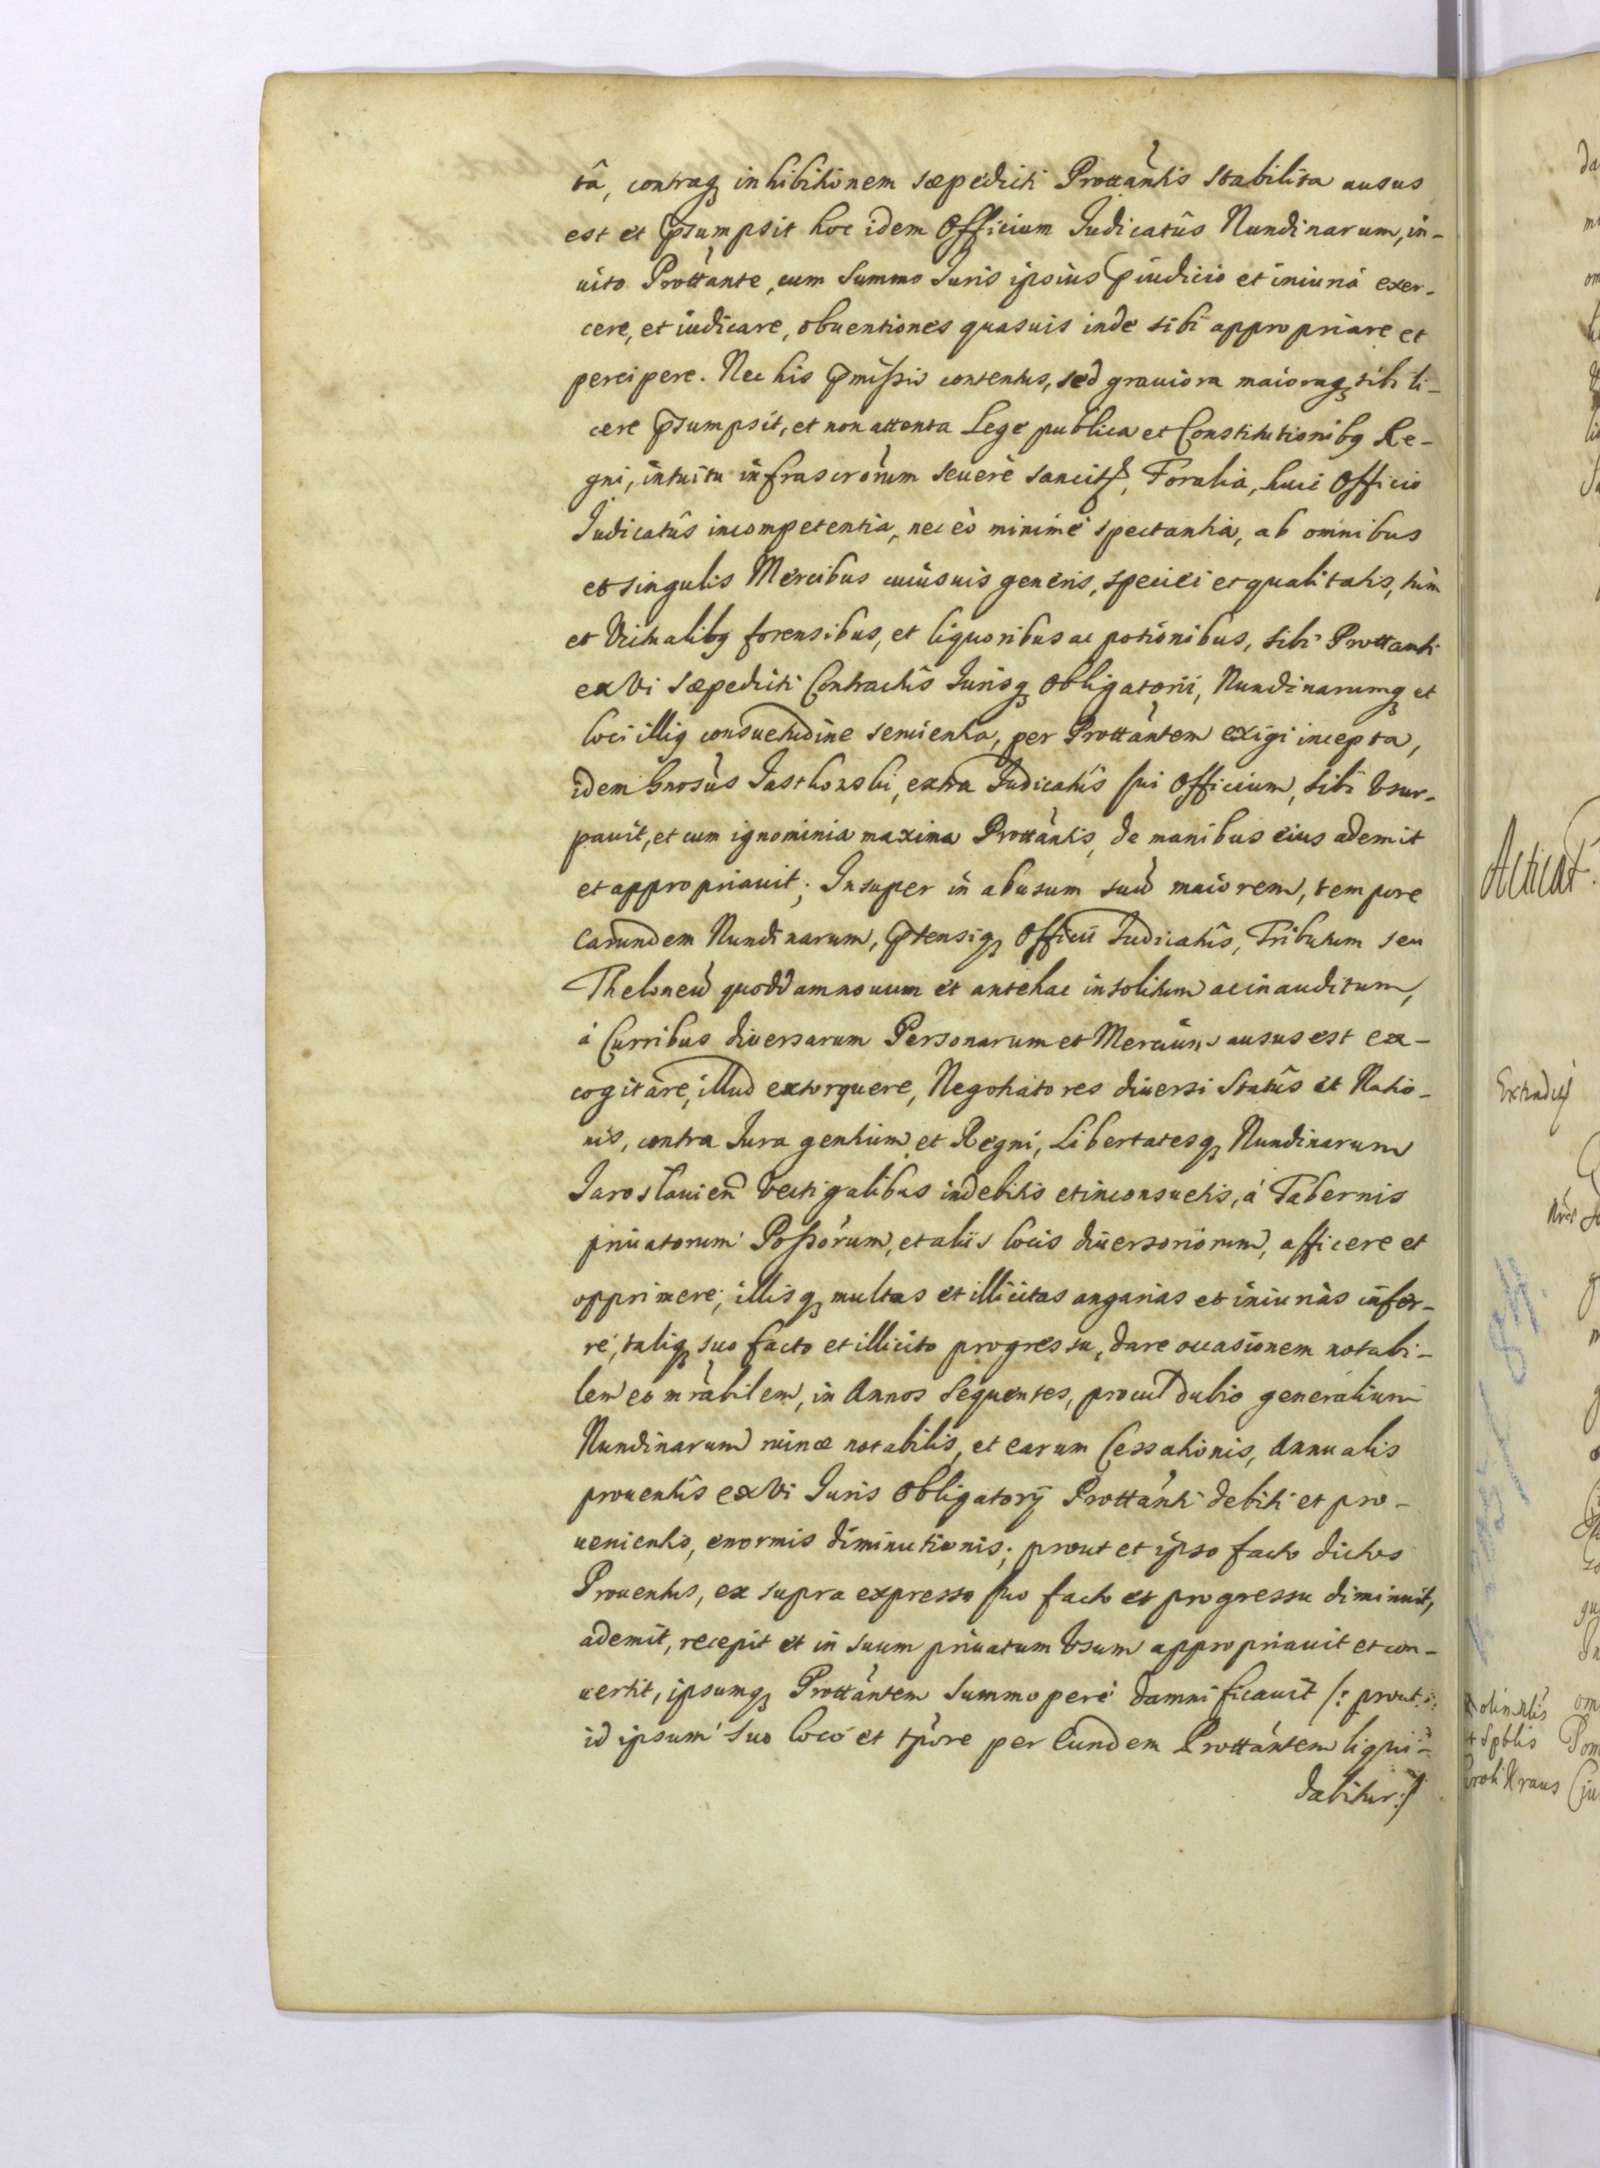 tâ, contraq́ inhibitionem sæpedicti Prottãntis stabilita ausus
est et p̃sumpsit hoc idem Officium Judicatûs Nundinarum, in-
uito Prottãnte, cum summo Juris ipsius p̃iudicio et iniuriâ exer-
cere, et iudicare, obuentiones quasuis inde sibi appropriare et
percipere. Nec his p̃missis contentus, sed grauiora maioraq́ sibi li-
cere p̃sumpsit, et non attenta Lege publica et Constitutionibq Re-
gni, intuitu infrascrõrum seuerè sancitį, Foralia, huic Officio
Judicatûs incompetentia, nec eò minimè spectantia, ab omnibus
et singulis Mercibus cuiusuis generis, speciei et qualitatis, tùm
et Victualibq forensibus, et liquoribus ac potionibus, sibi Prottanti
ex Vi sæpedicti Contractûs Jurisq́ Obligatorii, Nundinarumq́ et
loci illiq consuetudine seruienta, per Prottãntem exigi incepta,
idem Gnosùs Jastkonski, extra Judicatûs sui Officium, sibi Vsur-
pauit, et cum ignominia maxima Prottãntis, de manibus eius ademit
et appropriauit; Insuper in abusum suũ maiorem, tempore
earundem Nundinarum, p̃tensiq́ Officii Judicatûs, Tributum seu
Theloneũ quoddam nouum et antehac insolitum ac inauditum,
à Curribus diuersarum Personarum et Mercium, ausus est ex-
cogitare, illud extorquere, Negotiatores diuersi Statûs et Natio-
nis, contra Jura gentium et Regni, Libertatesq́ Nundinarum
Jaroslauień Vectigalibus indebitis et inconsuetis, à Tabernis
priuatorum Possõrum, et aliis locis diuersoriorum, afficere et
opprimere; illisq́ multas et illicitas angarias et iniurias infer-
re, taliq́ suo facto et illicito progressu, dare occasionem notabi-
lem et mrãbilem, in Annos sequentes, procul dubio generalium
Nundinarum ruinæ notabilis, et earum Cessationis, Annualis
prouentûs ex Vi Juris Obligatorÿ Prottãnti debiti et pro-
uenientis, enormis diminutionis; prout et ipso facto dictos
Prouentus, ex supra expresso suo facto et progressu diminuit,
ademit, recepit et in suum priuatum Vsum appropriauit et con-
uertit, ipsumq́ Prottãntem summopere damnificauit /: prout
id ipsum suo loco et tp̃ore per Eundem Prottãntem liqui-
dabitur :/
Acticat
Extradit